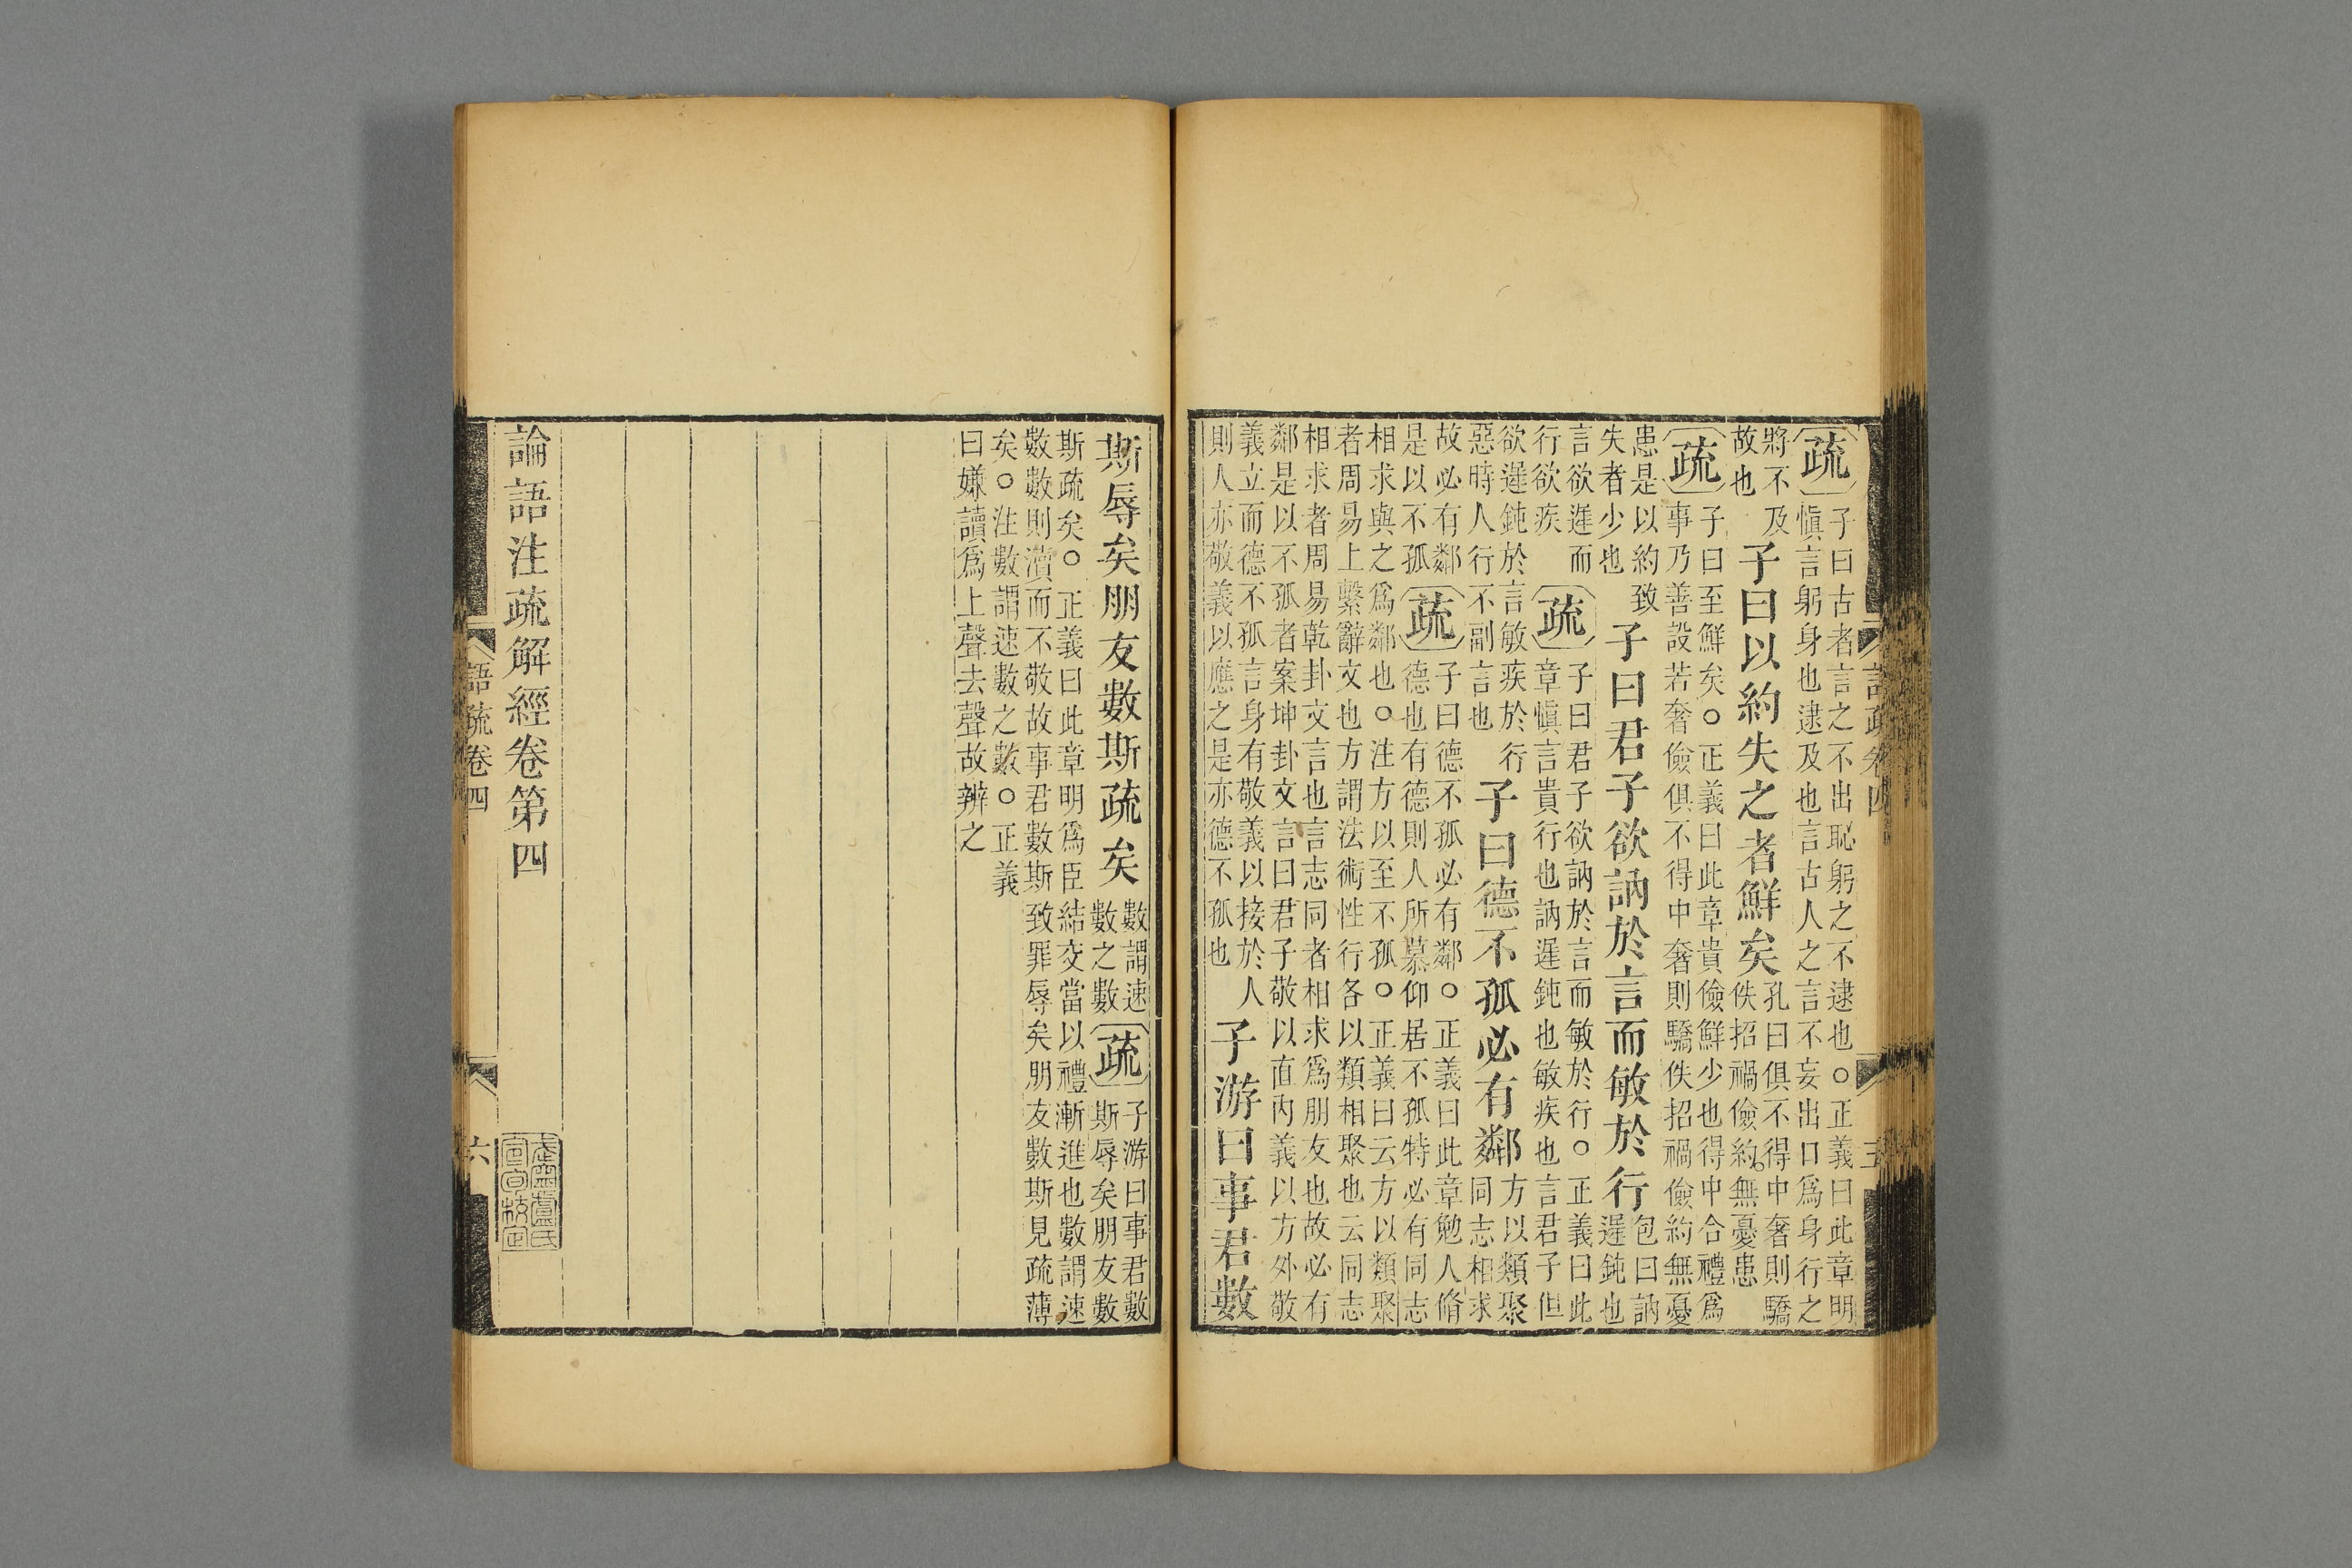 疏子曰古者言之不出恥躬之不逮也○正義曰此章明慎言躬身也逮及也言古人之言不妄出口爲身行之
將不及故也子曰以約失之者鮮矣孔曰俱不得中奢則驕佚招禍儉約無憂患
疏子曰至鮮矣○正義曰此章貴儉鮮少也得中合禮爲事乃善設若奢儉俱不得中奢則驕佚招禍儉約無憂
患是以約致失者少也子曰君子欲訥於言而敏於行包曰訥遲鈍也
言欲遲而行欲疾疏子曰君子欲訥於言而敏於行○正義曰此章慎言貴行也訥遲鈍也敏疾也言君子但
欲遲鈍於言敏疾於行惡時人行不副言也子曰德不孤必有鄰方以類聚同志相求
故必有鄰是以不孤疏子曰德不孤必有鄰○正義曰此章勉人脩德也有德則人所慕仰居不孤特必有同志
相求與之爲鄰也○注方以至不孤○正義曰云方以類聚者周易上繫辭文也方謂法術性行各以類相聚也云同志
相求者周易乾卦文言也言志同者相求爲朋友也故必有鄰是以不孤者案坤卦文言曰君子敬以直內義以方外敬
義立而德不孤言身有敬義以接於人則人亦敬義以應之是亦德不孤也子游曰事君數
斯辱矣朋友數斯疏矣數謂速數之數疏子游曰事君數斯辱矣朋友數
斯疏矣○正義曰此章明爲臣結交當以禮漸進也數謂速數數則瀆而不敬故事君數斯致罪辱矣朋友數斯見疏薄
矣○注數謂速數之數○正義曰嫌讀爲上聲去聲故辨之
論語注疏解經卷第四
語疏卷四
六